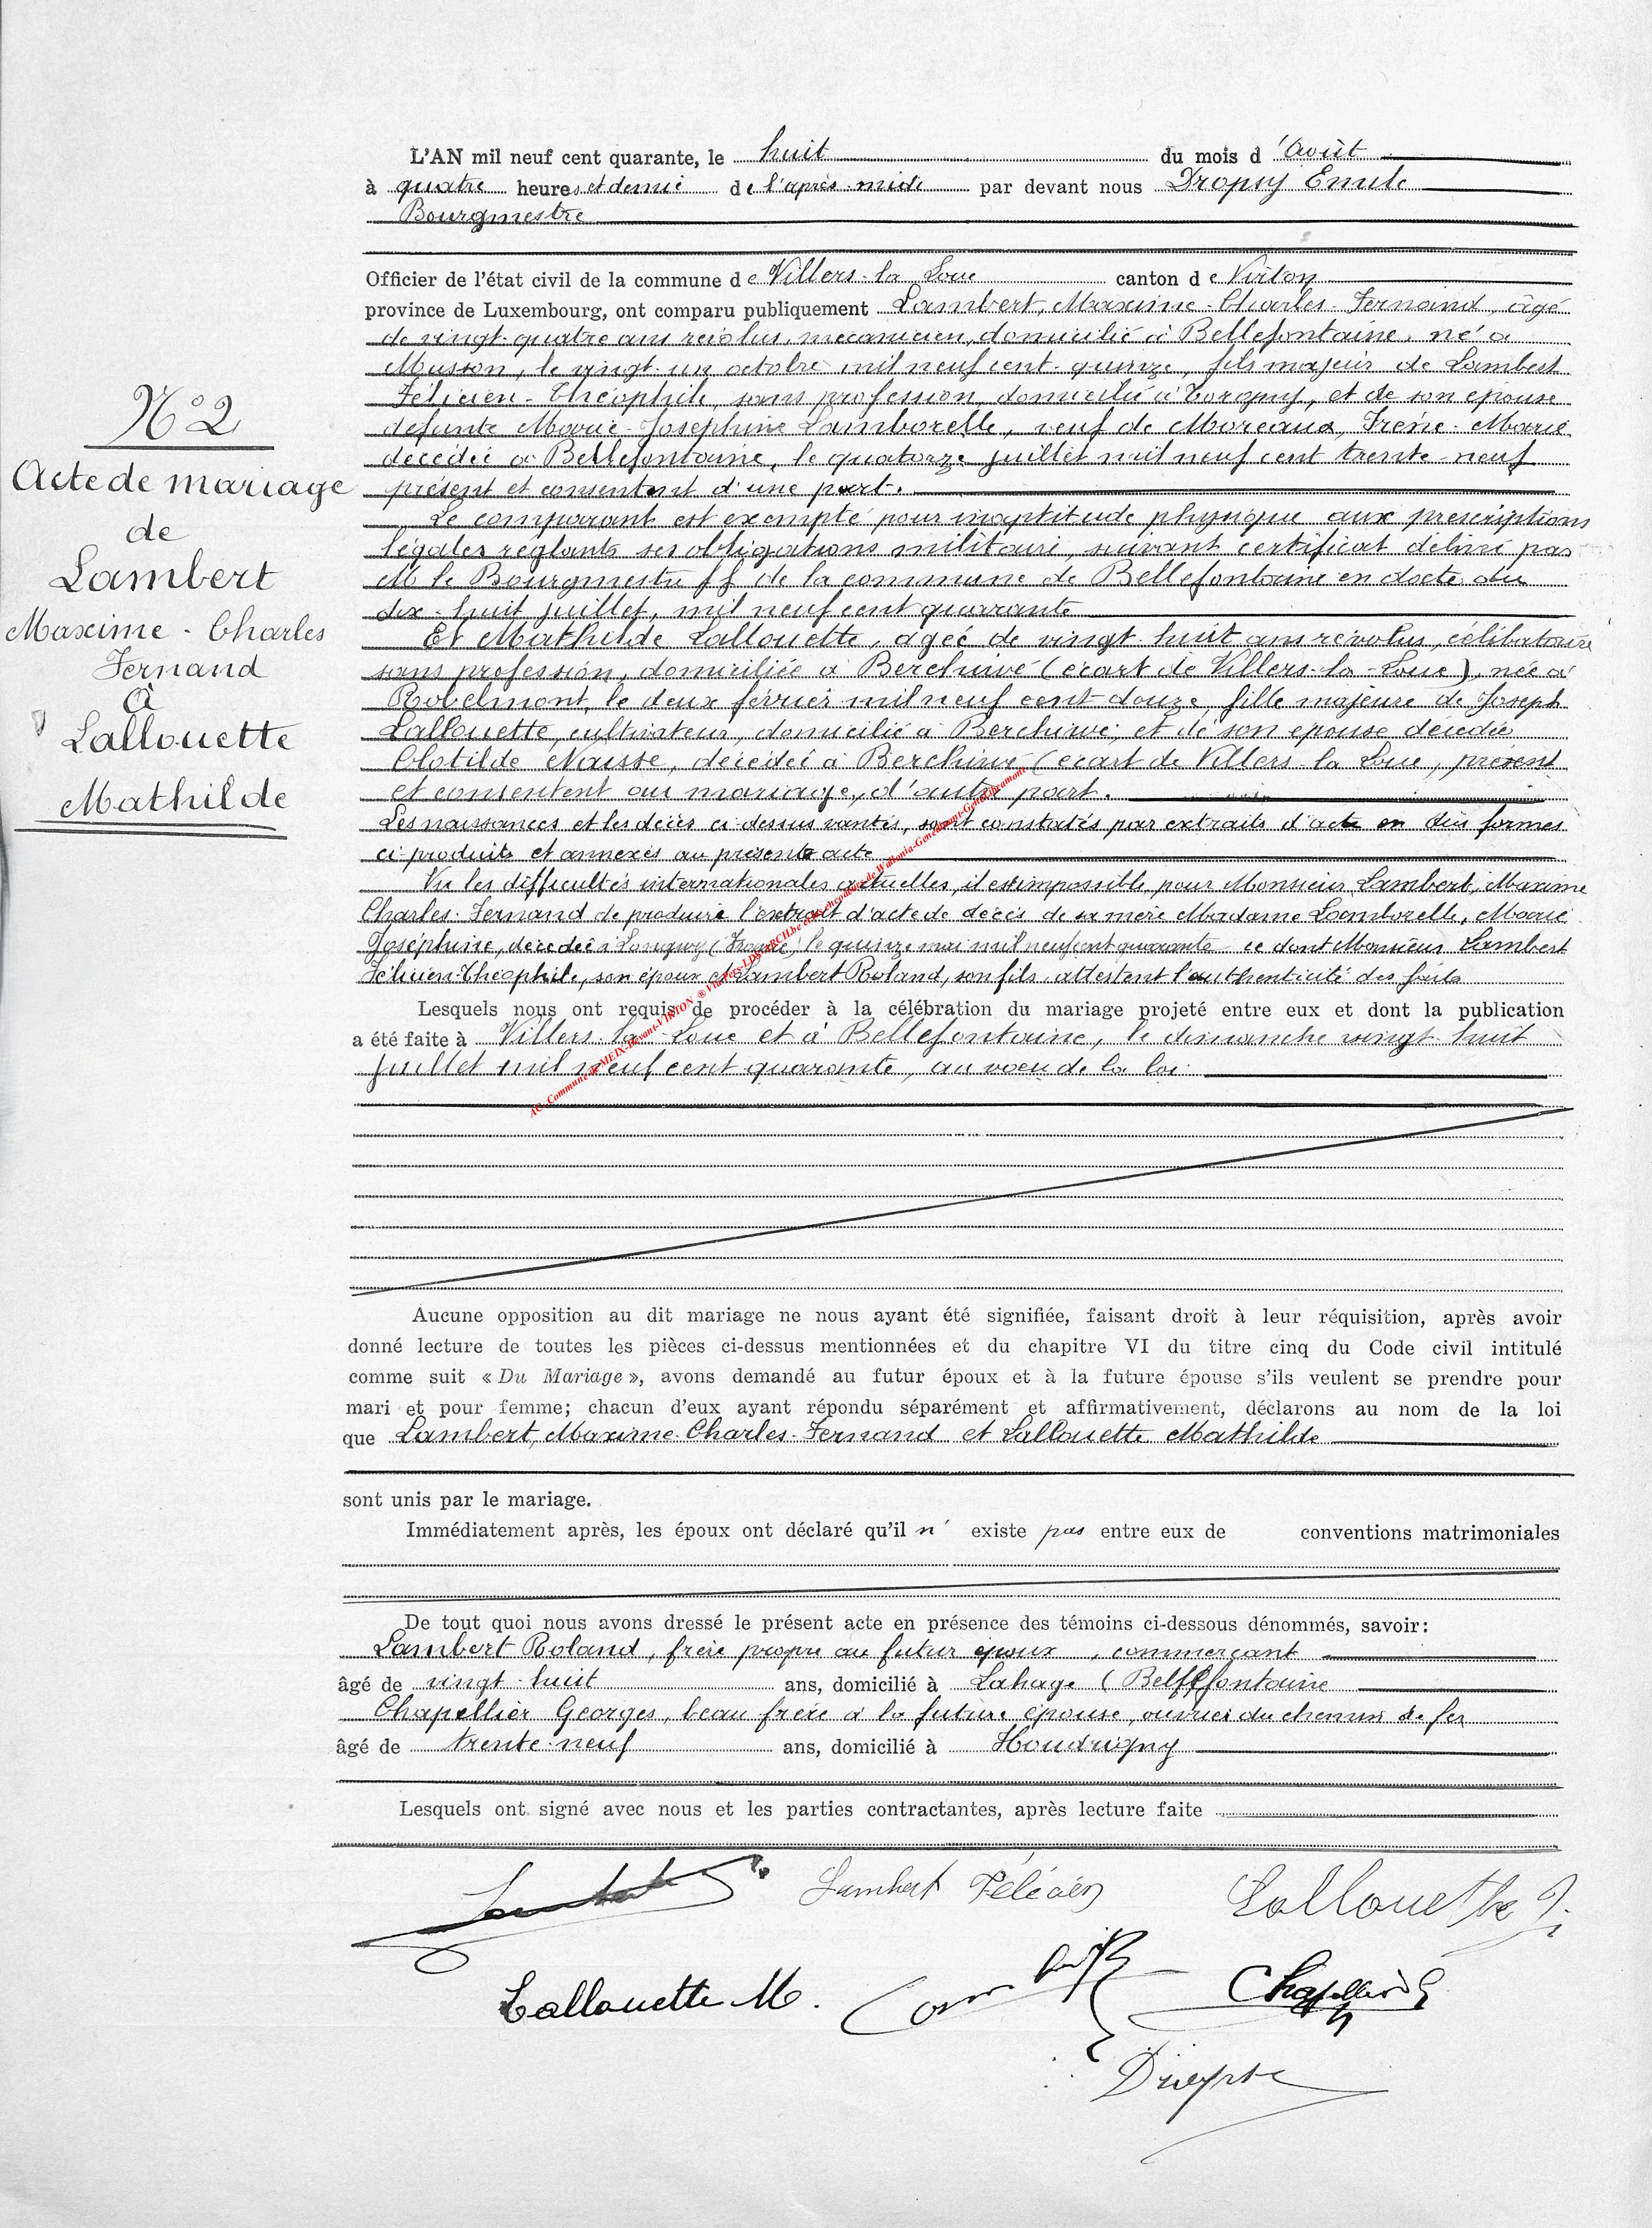 L'AN mil neuf cent quarante, le huit du mois d'Août
à quatre heures et demie de l'après-midi par devant nous Dropsy Emile
Bourgmestre
Officier de l'état civil de la commune de Villers-la-Loue canton de Virton
province de Luxembourg, ont comparu publiquement Lambert, Maxime-Charles-Fernand, âgé
de vingt-quatre ans révolus, mécanicien, domicilié à Bellefontaine, né à
Musson, le vingt-un octobre mil neuf cent-quinze, fils majeur de Lambert
Félicien-Théophile, sans profession, domicilié à Torgny, et de son épouse
défunte Marie-Joséphine Lamborelle, veuf de Moreaux, Irène-Marie
décédée à Bellefontaine, le quatorze juillet mil neuf cent trente-neuf
présent et consentant d'une part.
Le comparant est exempté pour inaptitude physique aux prescriptions
légales réglants ses obligations militaire, suivant certificat délivré par
M le Bourgmestre ff de la commune de Bellefontaine en date du
dix-huit juillet, mil neuf cent quarante
N° 2
Acte de mariage
de
Lambert
Maxime-Charles
Fernand
à
Lallouette
Mathilde
Et Mathilde Lallouette, agée de vingt-huit ans révolus, célibataire
sans profession, domiciliée à Berchiwé (écart de Villers-la-Loue), née à
Robelmont, le deux février mil neuf cent douze, fille majeure de Joseph
Lallouette, cultivateur, domicilié à Berchiwé, et de son épouse décédée
Clotilde Nausse, décédée à Berchiwé (écart de Villers-la-Loue, présent
et consentent au mariage, d'autre part.
Les naissances et les décès ci-dessus vantés, sont constatés par extraits d'acte en dûs formes
ci-produits et annexés au présent acte
Vu les difficultés internationales actuelles, il est impossible pour Monsieur Lambert, Maxime
Charles-Fernand de produire l'extrait d'acte de décès de sa mère Madame Lamborelle, Marie
Joséphine, décédée à Longwy (France) le quinze mai mil neuf cent quarante ce dont Monsieur Lambert
Félicien-Théophile, son époux et Lambert Roland, son fils attestent l'authenticité des faits
Lesquels nous ont requis de procéder à la célébration du mariage projeté entre eux et dont la publication
a été faite à Villers-la-Loue et à Bellefontaine, le dimanche vingt-huit
juillet mil neuf cent quarante, au vœu de la loi
AC- Commune de MEIX-Devant-VIRTON ® Via Pers-LDS-ARCH.be et les encodeurs de Wallonia-Genedinant-GeneLibramont
Aucune opposition au dit mariage ne nous ayant été signifiée, faisant droit à leur réquisition, après avoir
donné lecture de toutes les pièces ci-dessus mentionnées et du chapitre VI du titre cinq du Code civil intitulé
comme suit « Du Mariage », avons demandé au futur époux et à la future épouse s'ils veulent se prendre pour
mari et pour femme; chacun d'eux ayant répondu séparément et affirmativement, déclarons au nom de la loi
que Lambert, Maxime-Charles-Fernand et Lallouette Mathilde
sont unis par le mariage.
Immédiatement après, les époux ont déclaré qu'il n' existe pas entre eux de conventions matrimoniales
De tout quoi nous avons dressé le présent acte en présence des témoins ci-dessous dénommés, savoir:
Lambert Roland, frère propre au futur époux, commerçant
âgé de vingt-huit ans, domicilié à Lahage (Bellefontaine
Chapellier Georges, beau frère à la future épouse, ouvrier du chemin de fer
âgé de trente-neuf ans, domicilié à Houdrigny
Lesquels ont signé avec nous et les parties contractantes, après lecture faite
Lambert Félicien Lallouette J.
Lallouette M. Chapellier G